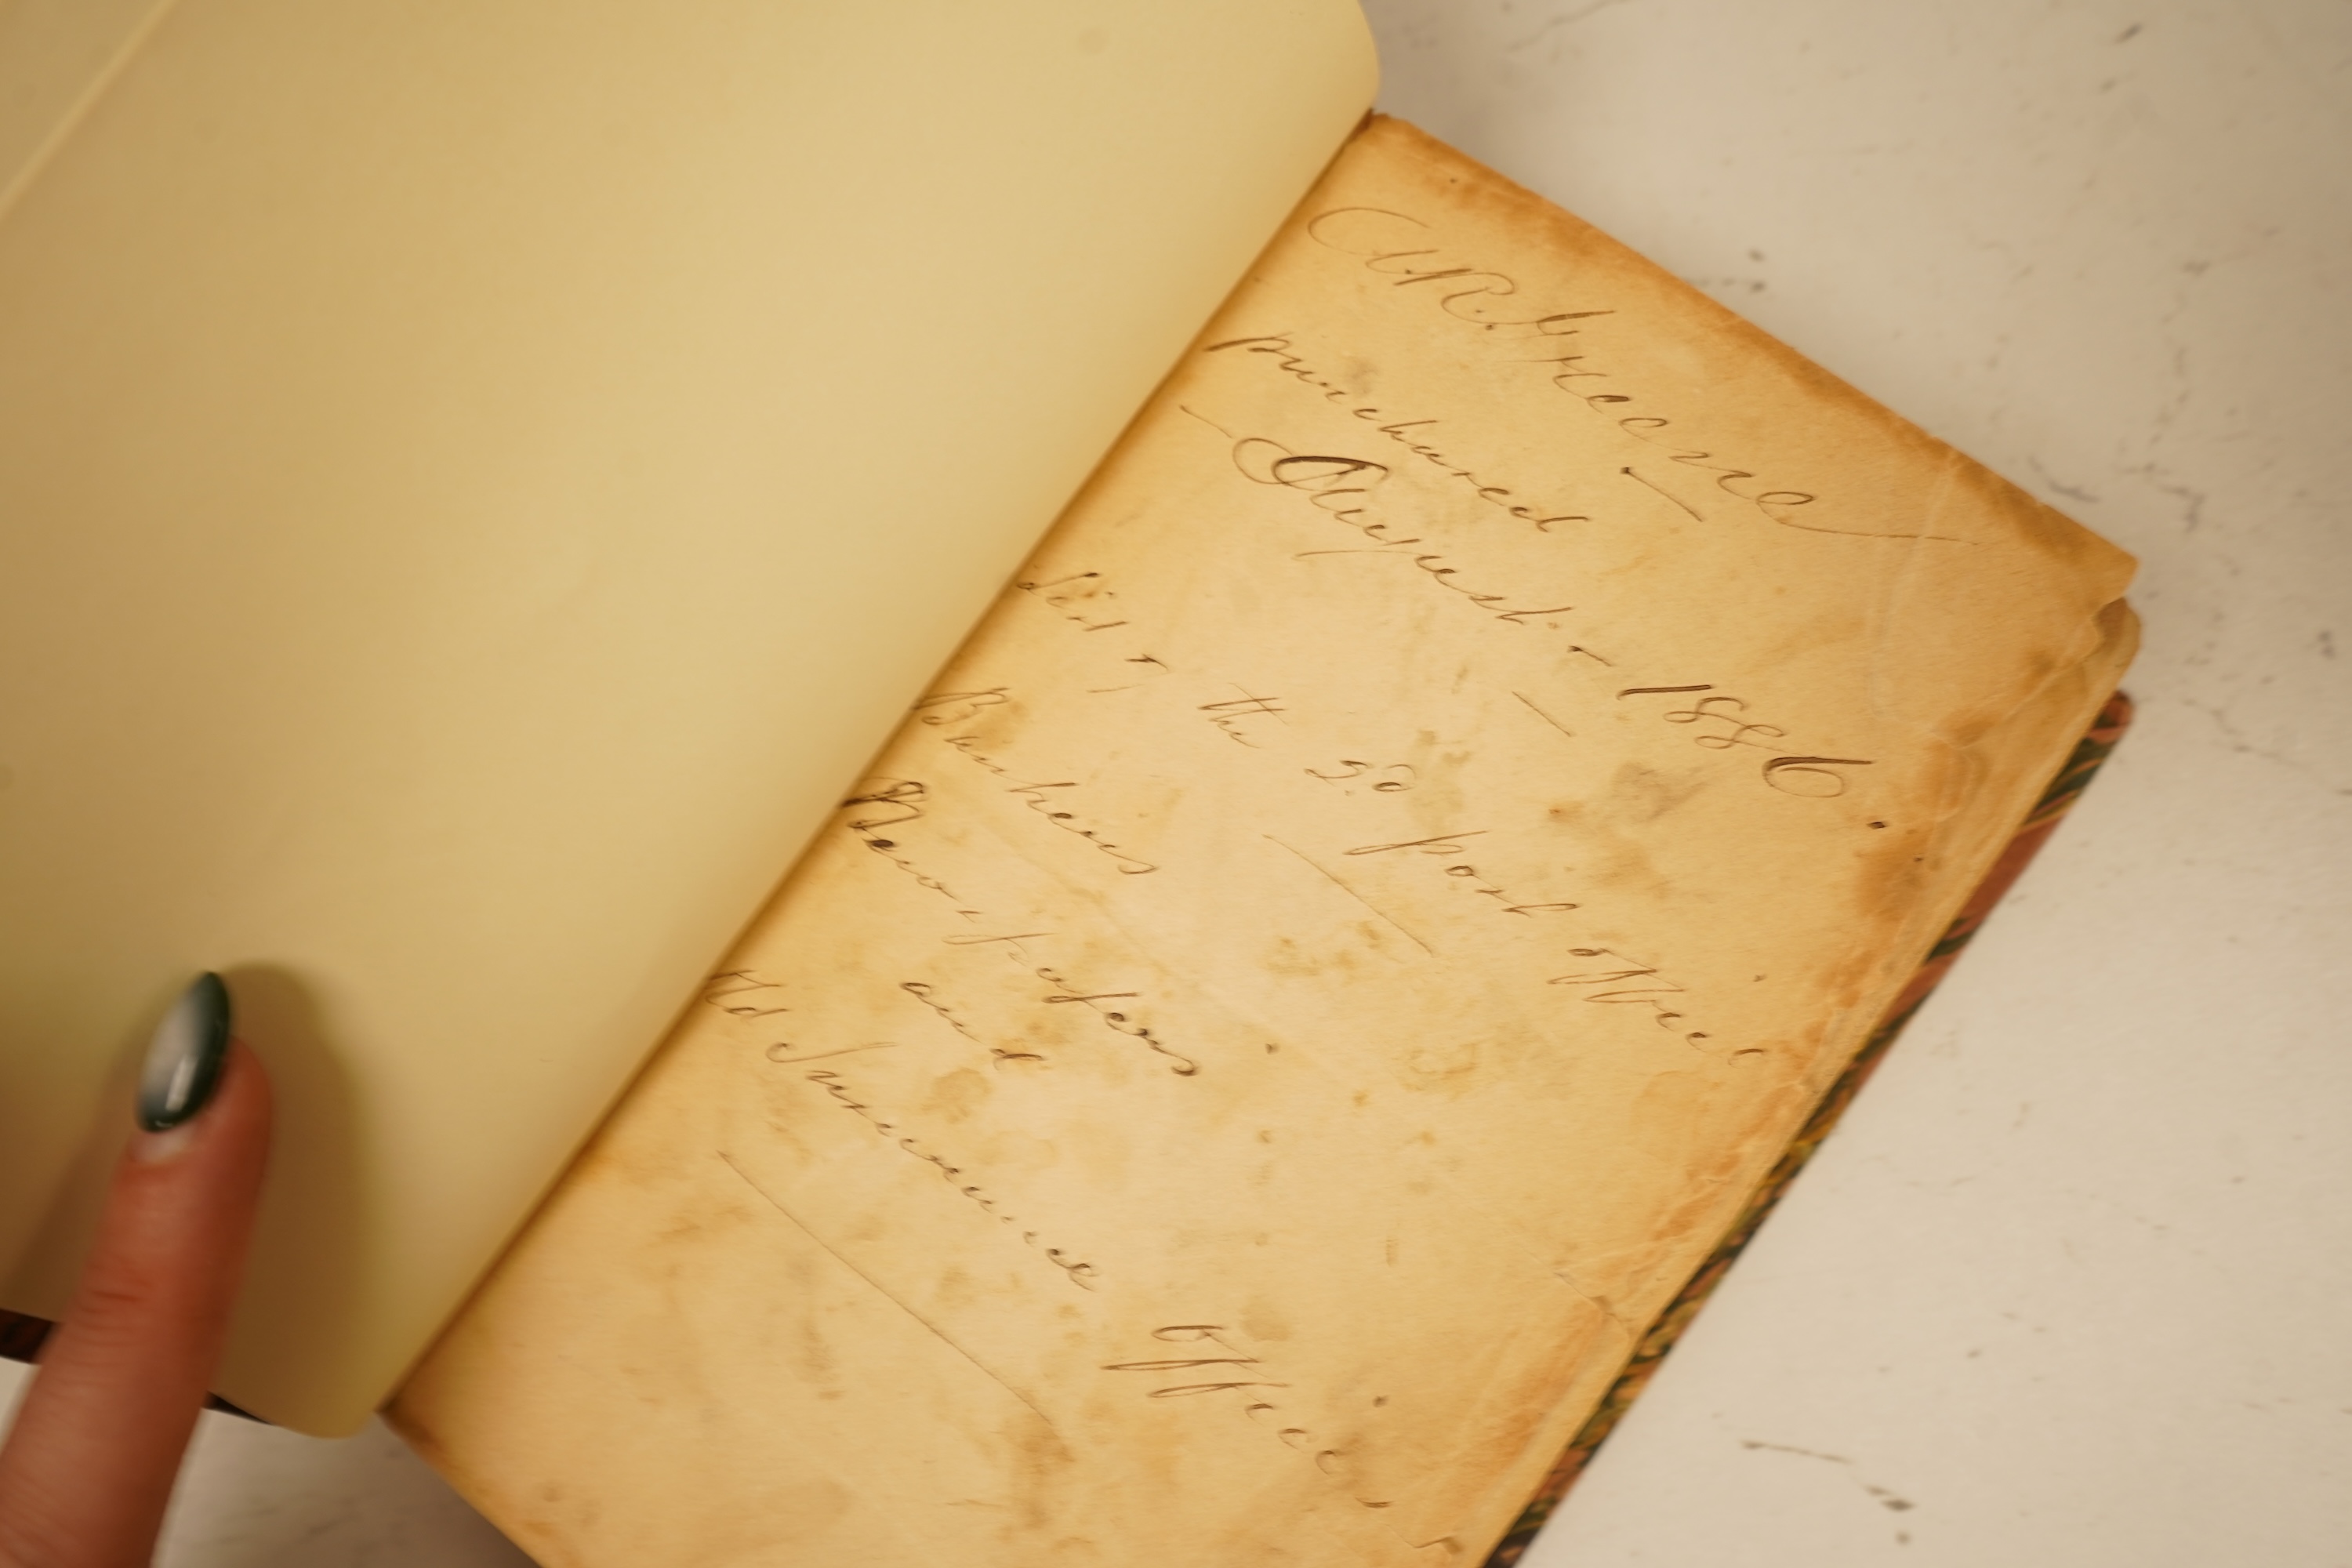 A R. Greene
purchased
August - 1886.
List of the 50 post offices
Bankers
Newspapers
and
Old Insurance Offices